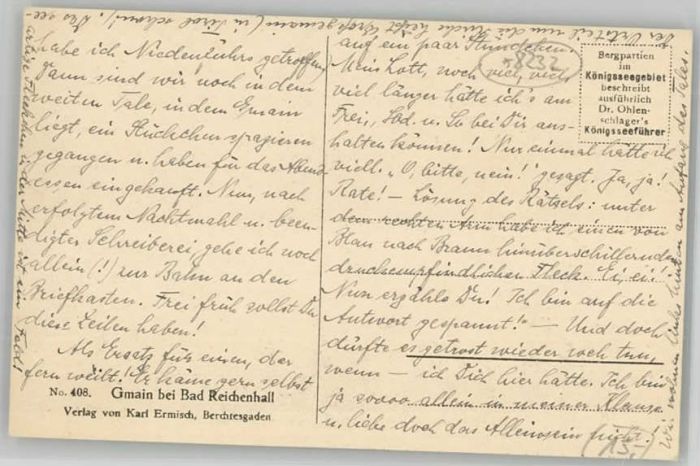 habe ich Niedenzuhrs getroffen,
Dann sind wir noch in dem
weiten Tale, in dem Gmain
liegt, ein Stückchen spazieren
gegangen u. haben für das Abend-
essen eingekauft. Nun, nach
erfolgtem Nachtmahl u. been-
digter Schreiberei, gehe ich noch
allein (!) zur Bahn an den
Briefkasten. Frei früh sollst Du
diese Zeilen haben!
Als Ersatz für einen, der
fern weilt! Er käme gern selbst
No. 408. Gmain bei Bad Reichenhall
Verlag von Karl Ermisch, Berchtesgaden
auf ein paar Stündchen.
Mein Gott, noch viel, viel,
viel länger hätte ich's am
Frei., Sbd. u. So bei Dir aus-
halten können! Nur einmal hätte ich
viell. "O, bitte, nein!" gesagt. Ja, ja!
Rate! – Lösung des Rätsels: unter
dem rechten Arm habe ich einen von
Blau nach Braun hinüberschillernden
druckempfindlichen Fleck. Ei, ei!
Nun erzähle Du! Ich bin auf die
Antwort gespannt! – Und doch
dürfte es getrost wieder weh tun,
wenn – ich Dich hier hätte. Ich bin
ja soooo allein in meiner Klause
u. liebe doch das Alleinsein nicht!
*8232
Bergpartien
im
Königsseegebiet
beschreibt
ausführlich
Dr. Ohlen-
schlager's
Königsseeführer
Der Ortsteil um die Kirche heißt Großgmain (in Tirol schon!). Das
in der Mitte ist ein Feld!
Wir wohnen links hinten am Anfang des Tales.
15,-